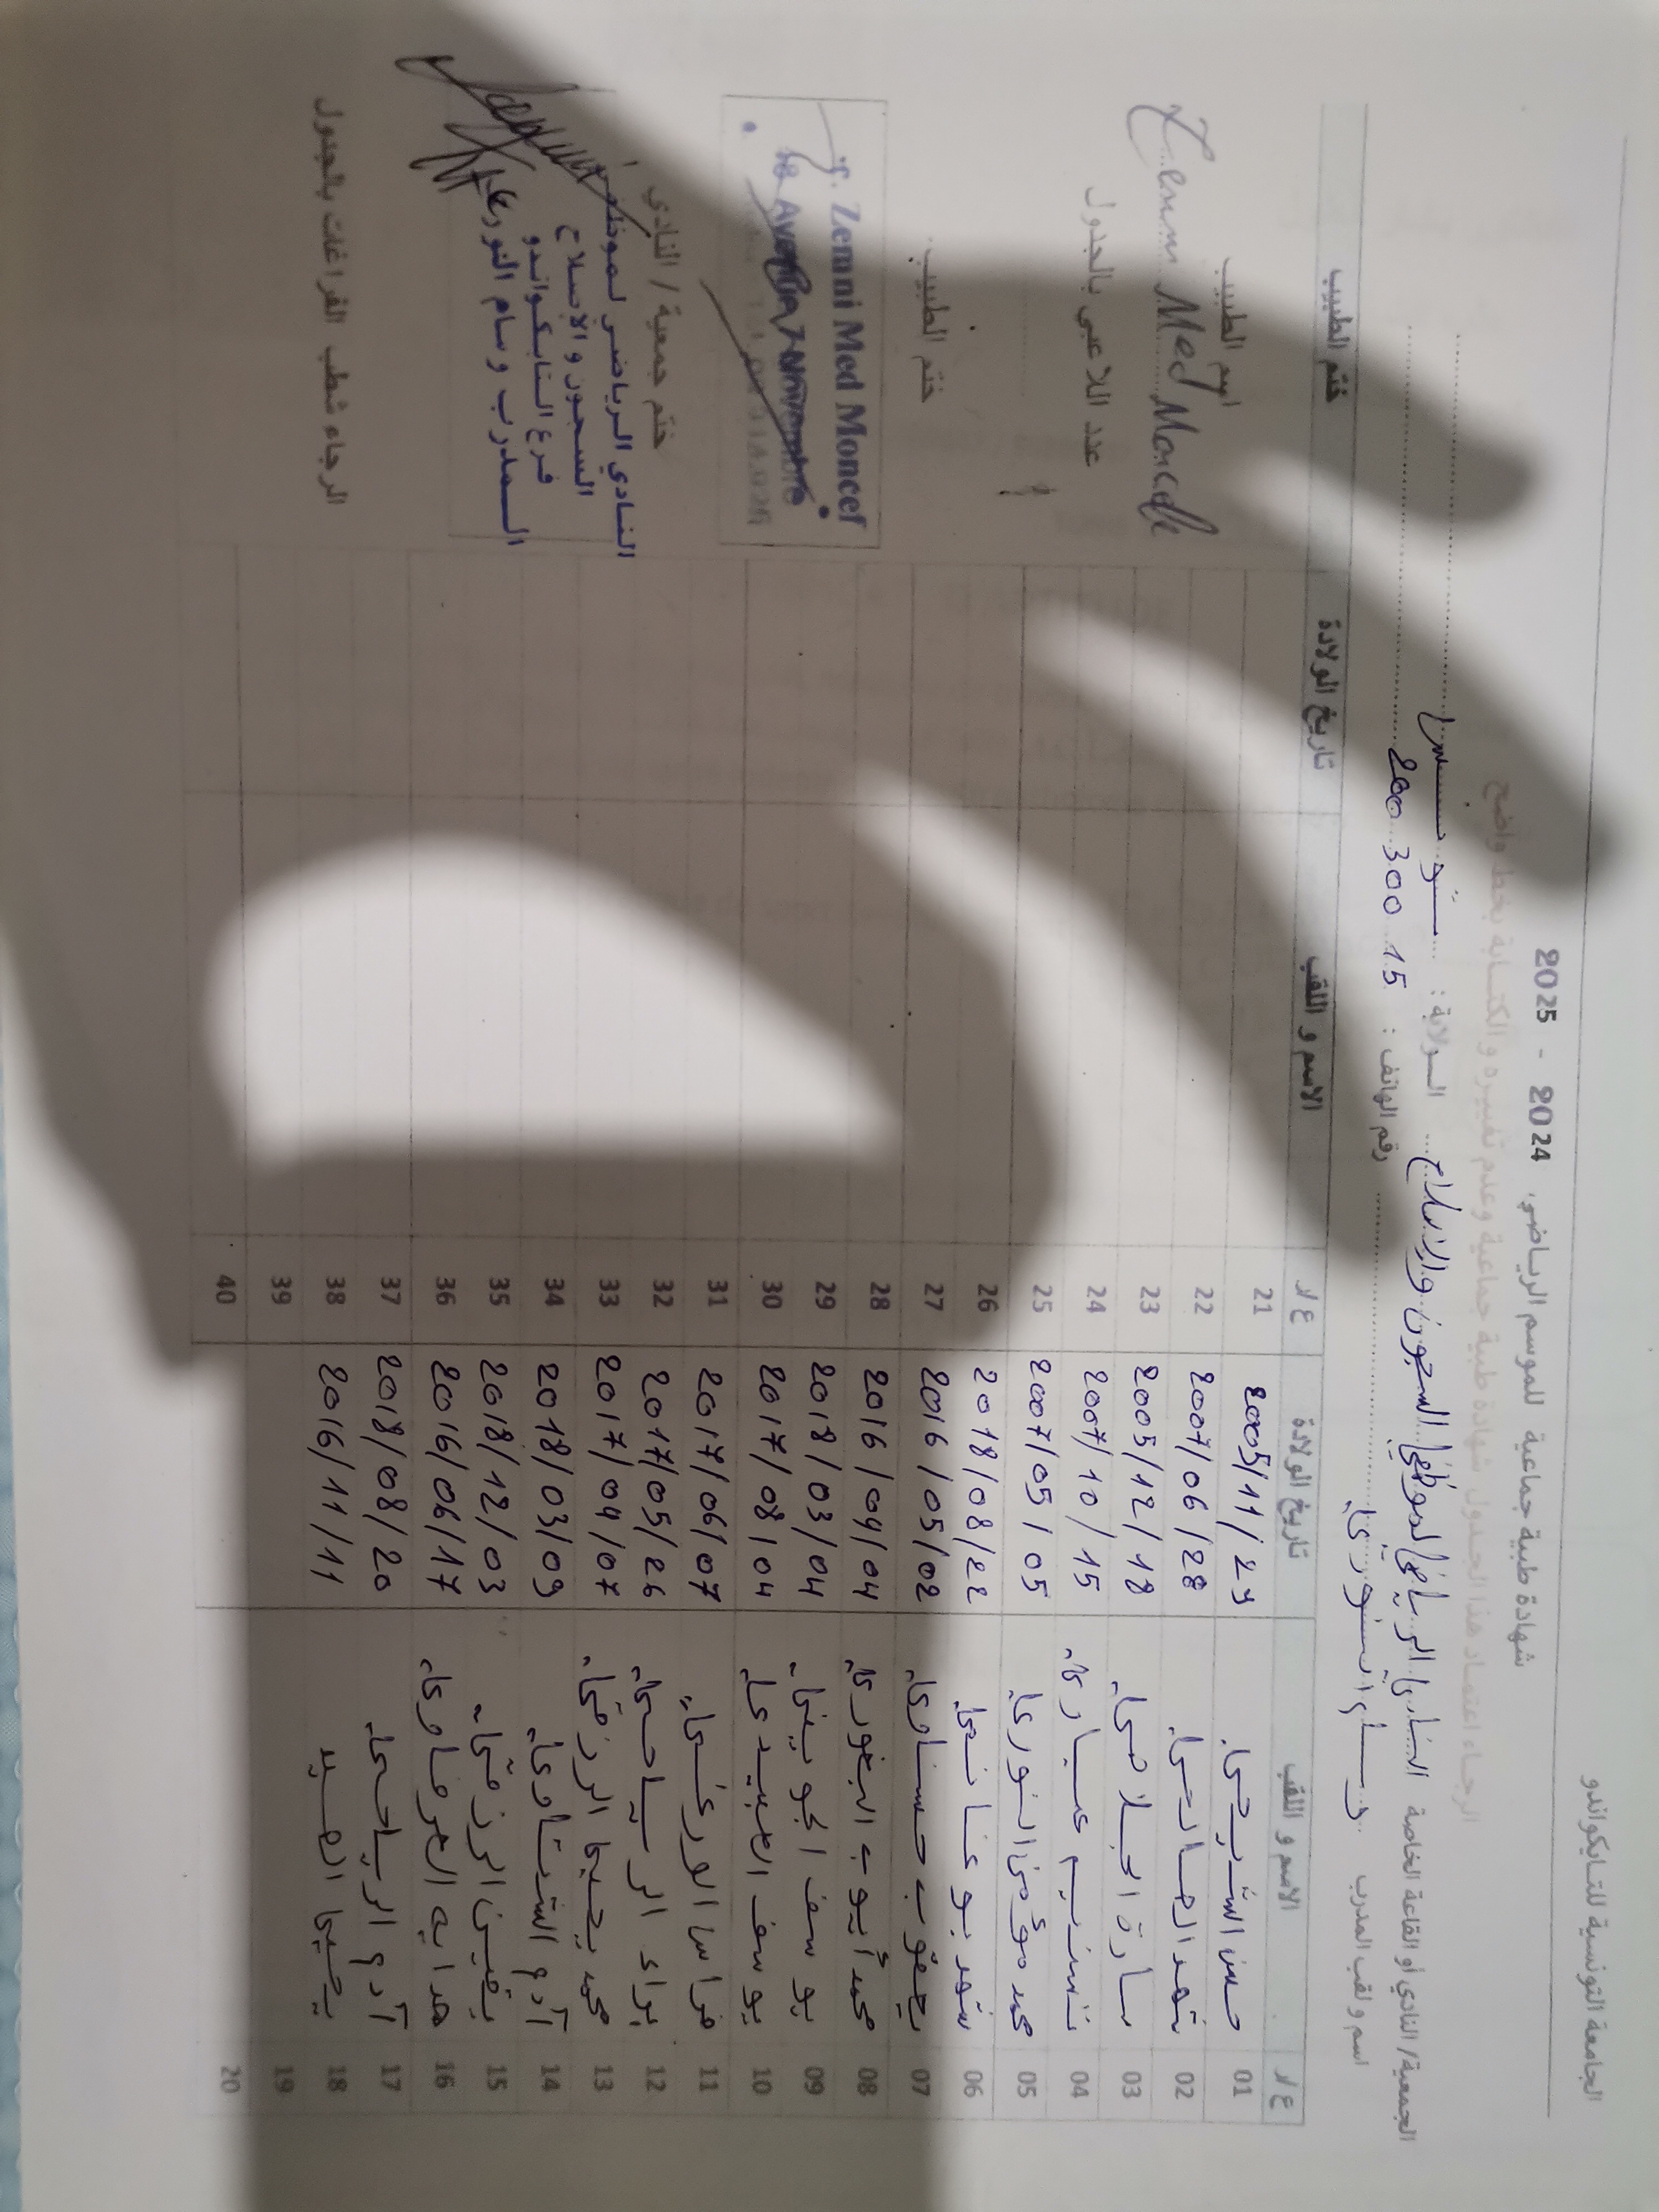 الجامعة التونسية للتايكواندو
شهادة طبية جماعية للموسم الرياضي 2024 - 2025
الرجاء اعتماد هذا الجدول شهادة طبية جماعية وعدم تغييره و الكتابة بخط واضح
الجمعية/ النادي أو القاعة الخاصة النادي الرياضي لموظفي السجون والإصلاح الولاية :
اسم و لقب المدرب وسام النوري رقم الهاتف : 15 300 200
ع/د الاسم و اللقب تاريخ الولادة ع/د الاسم و اللقب تاريخ الولادة ختم الطبيب
01 حسن الشريحي 2005/11/29 21
02 2007/06/28 22
03 سارة الجلاصي 2005/12/18 23
04 تسنيم عيساوي 2007/10/15 24
05 محمد مؤمن النوري 2007/05/05 25
06 بوغانمي 2018/08/22 26
07 يعقوب حسناوي 2016/05/02 27
08 محمد أيوب 2016/04/04 28
09 يوسف الجويني 2018/03/04 29
10 يوسف العبيدي 2017/08/04 30
11 فراس الورغي 2017/06/07 31
12 براء الرياحي 2017/05/26 32
13 محمد يحيى الرزقي 2017/04/07 33
14 آدم 2018/03/09 34
15 يقين الرزقي 2018/12/03 35
16 هداية العرفاوي 2016/06/17 36
17 آدم الرياحي 2018/08/20 37
18 يحيى الصيد 2016/11/11 38
19 39
20 40
اسم الطبيب
Zemni Med Moncef
عدد اللاعبي بالجدول
ختم الطبيب
Zemni Med Moncef
18 Avenue 7 Novembre
ختم جمعية / النادي
النادي الرياضي لموظفي
السجون و الإصلاح
فرع التايكواندو
المدرب وسام النوري
الرجاء شطب الفراغات بالجدول